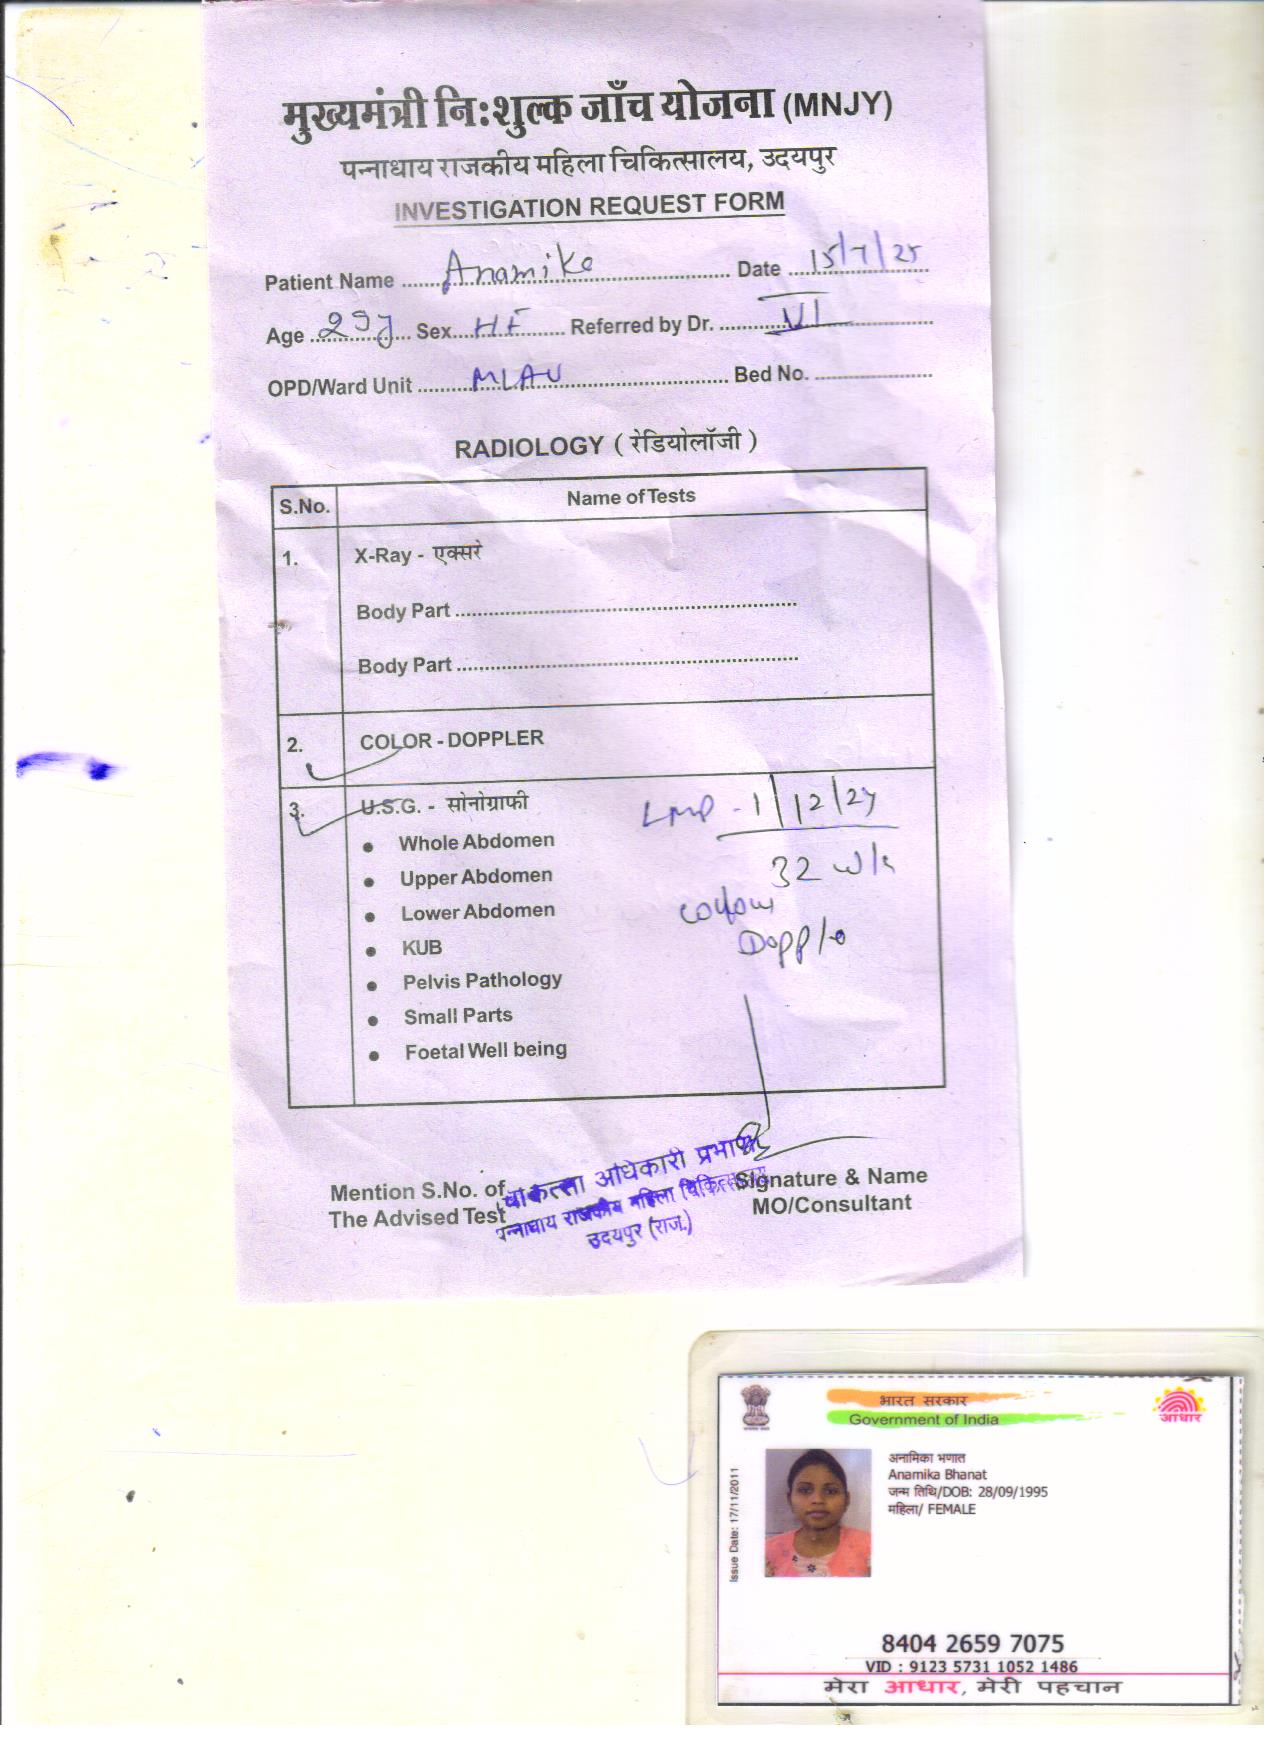 मुख्यमंत्री निःशुल्क जाँच योजना (MNJY)
पन्नाधाय राजकीय महिला चिकित्सालय, उदयपुर
INVESTIGATION REQUEST FORM
Patient Name Anamika Date 15/7/25
Age 29y Sex HF Referred by Dr. VI
OPD/Ward Unit MLAU Bed No.
RADIOLOGY ( रेडियोलॉजी )
S.No. Name of Tests
1. X-Ray - एक्सरे
Body Part
Body Part
2. COLOR - DOPPLER
3. U.S.G. - सोनोग्राफी LMP - 1/12/24
• Whole Abdomen
32 wk
• Upper Abdomen
• Lower Abdomen colour
• KUB Dopple
• Pelvis Pathology
• Small Parts
• Foetal Well being
Mention S.No. of
The Advised Test
चिकित्सा अधिकारी प्रभारी
पन्नाधाय राजकीय महिला चिकित्सालय
उदयपुर (राज.)
Signature & Name
MO/Consultant
भारत सरकार
Government of India
आधार
Issue Date: 17/11/2011
अनामिका भणात
Anamika Bhanat
जन्म तिथि/DOB: 28/09/1995
महिला/ FEMALE
8404 2659 7075
VID : 9123 5731 1052 1486
मेरा आधार, मेरी पहचान